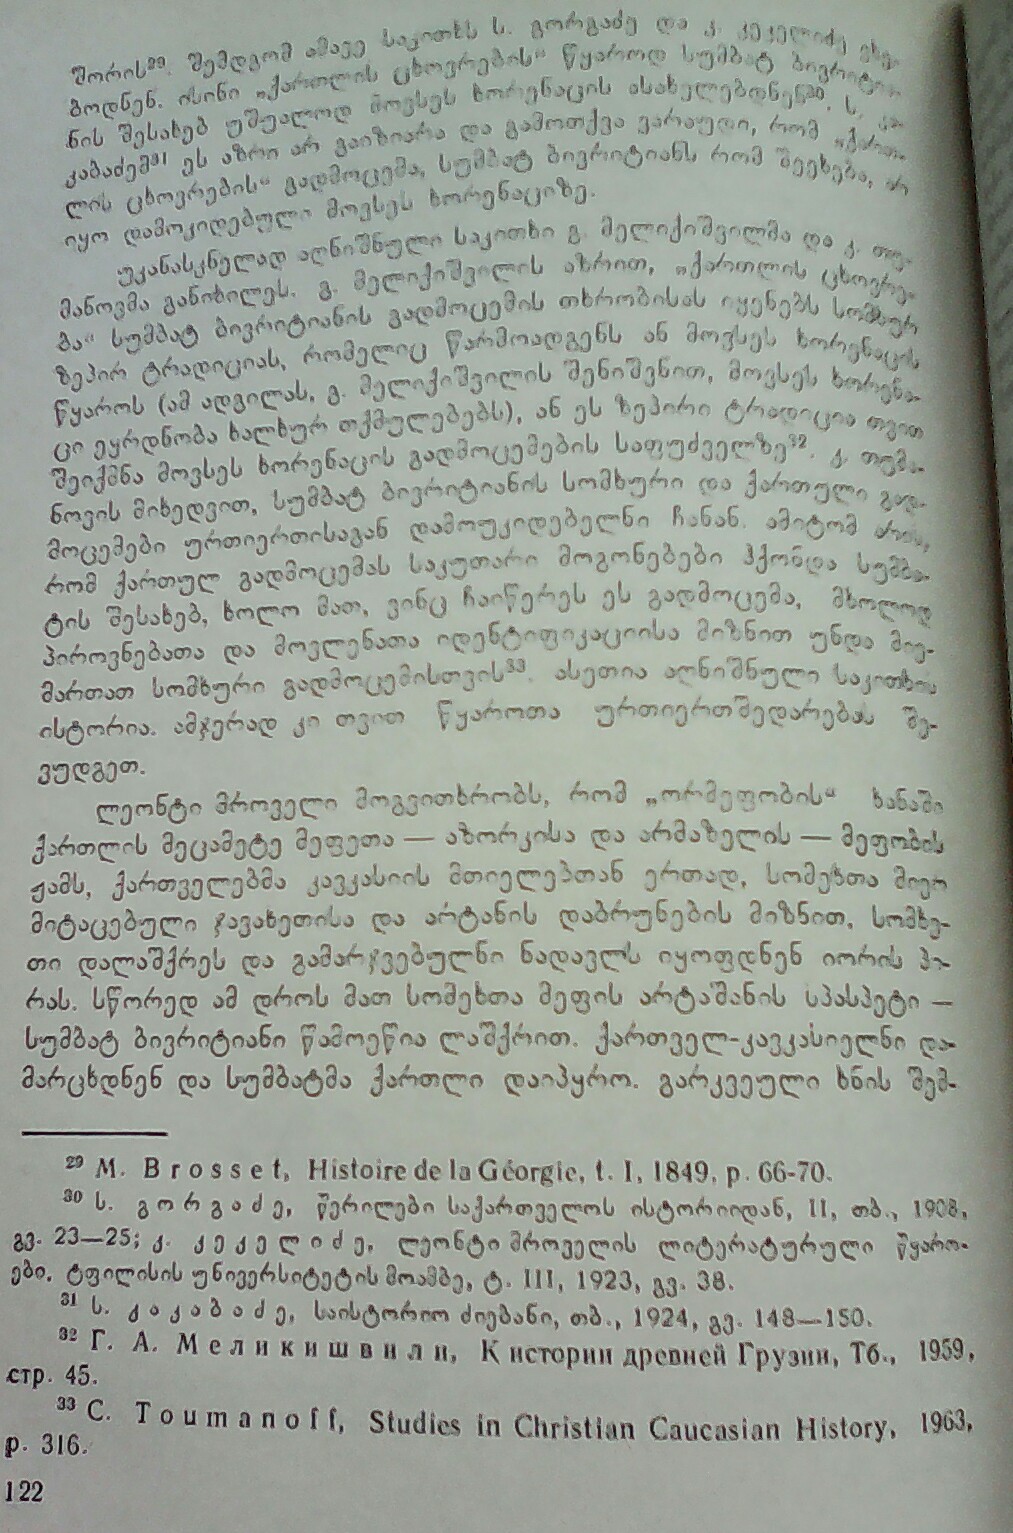 შორის²⁹. შემდგომ ამავე საკითხს ს. გორგაძე და კ. კეკელიძე ეხე-
ბოდნენ. ისინი „ქართლის ცხოვრების“ წყაროდ სუმბატ ბივრიტია-
ნის შესახებ უშუალოდ მოვსეს ხორენაცის ასახელებდნენ³⁰. ს. კა-
კაბაძემ³¹ ეს აზრი არ გაიზიარა და გამოთქვა ვარაუდი, რომ „ქართ-
ლის ცხოვრების“ გადმოცემა, სუმბატ ბივრიტიანს რომ შეეხება, არ
იყო დამოკიდებული მოვსეს ხორენაციზე.
უკანასკნელად აღნიშნული საკითხი გ. მელიქიშვილმა და კ. თუ-
მანოვმა განიხილეს. გ. მელიქიშვილის აზრით, „ქართლის ცხოვრე-
ბა“ სუმბატ ბივრიტიანის გადმოცემის თხრობისას იყენებს სომხურ
ზეპირ ტრადიციას, რომელიც წარმოადგენს ან მოვსეს ხორენაცის
წყაროს (ამ ადგილას, გ. მელიქიშვილის შენიშვნით, მოვსეს ხორენა-
ცი ეყრდნობა ხალხურ თქმულებებს), ან ეს ზეპირი ტრადიცია თვით
შეიქმნა მოვსეს ხორენაცის გადმოცემების საფუძველზე³². კ. თუმა-
ნოვის მიხედვით, სუმბატ ბივრიტიანის სომხური და ქართული გად-
მოცემები ურთიერთისაგან დამოუკიდებელნი ჩანან. ამიტომ არის,
რომ ქართულ გადმოცემას საკუთარი მოგონებები ჰქონდა სუმბა-
ტის შესახებ, ხოლო მათ, ვინც ჩაიწერეს ეს გადმოცემა, მხოლოდ
პიროვნებათა და მოვლენათა იდენტიფიკაციისა მიზნით უნდა მიე-
მართათ სომხური გადმოცემისთვის³³. ასეთია აღნიშნული საკითხის
ისტორია. ამჯერად კი თვით წყაროთა ურთიერთშედარებას შე-
ვუდგეთ.
ლეონტი მროველი მოგვითხრობს, რომ „ორმეფობის“ ხანაში
ქართლის მეცამეტე მეფეთა — აზორკისა და არმაზელის — მეფობის
ჟამს, ქართველებმა კავკასიის მთიელებთან ერთად, სომეხთა მიერ
მიტაცებული ჯავახეთისა და არტანის დაბრუნების მიზნით, სომხე-
თი დალაშქრეს და გამარჯვებულნი ნადავლს იყოფდნენ იორის პი-
რას. სწორედ ამ დროს მათ სომეხთა მეფის არტაშანის სპასპეტი —
სუმბატ ბივრიტიანი წამოეწია ლაშქრით. ქართველ-კავკასიელნი და-
მარცხდნენ და სუმბატმა ქართლი დაიპყრო. გარკვეული ხნის შემ-
²⁹ M. Brosset, Histoire de la Géorgie, t. I, 1849, p. 66-70.
³⁰ ს. გორგაძე, წერილები საქართველოს ისტორიიდან, II, თბ., 1908,
გვ. 23—25; კ. კეკელიძე, ლეონტი მროველის ლიტერატურული წყარო-
ები, ტფილისის უნივერსიტეტის მოამბე, ტ. III, 1923, გვ. 38.
³¹ ს. კაკაბაძე, საისტორიო ძიებანი, თბ., 1924, გვ. 148—150.
³² Г. А. Меликишвили, К истории древней Грузии, Тб., 1959,
стр. 45.
³³ C. Toumanoff, Studies in Christian Caucasian History, 1963,
p. 316.
122